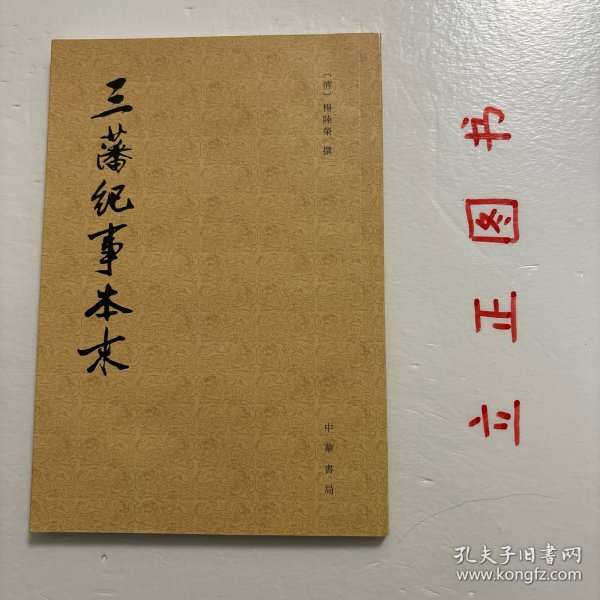 三藩紀事本末
〔清〕楊陸榮 撰
中華書局
立正图书
孔夫子旧书网
www.kongfz.com